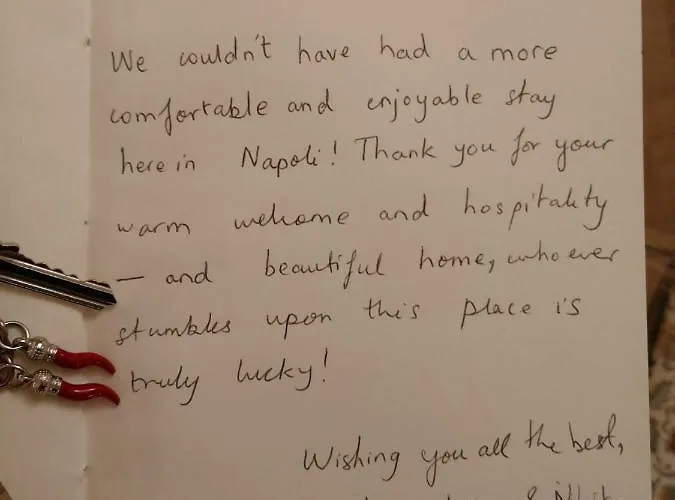 We couldn't have had a more
comfortable and enjoyable stay
here in Napoli! Thank you for your
warm welcome and hospitality
— and beautiful home, whoever
stumbles upon this place is
truly lucky!
Wishing you all the best,
&